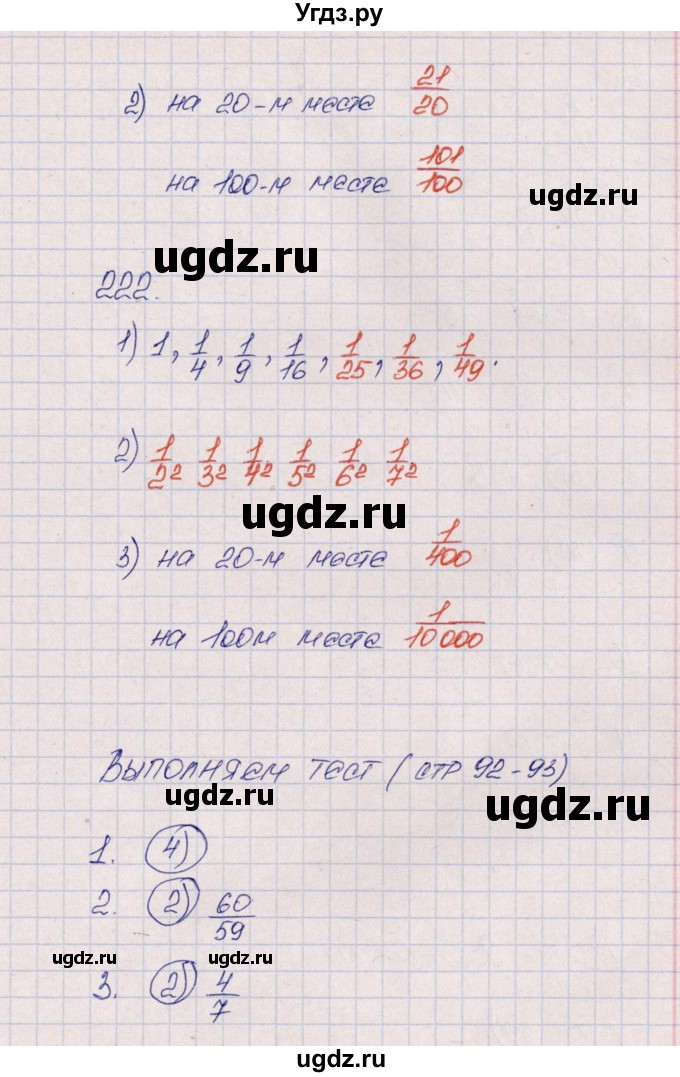 Угдз.ру
2) на 20-м месте 21/20
на 100-м месте 101/100
ugdz.ru
ugdz.ru
222.
1) 1, 1/4, 1/9, 1/16, 1/25, 1/36, 1/49.
2) 1/2² 1/3² 1/4² 1/5² 1/6² 1/7²
ugdz.ru
3) на 20-м месте 1/400
на 100м месте 1/10 000
Выполняем тест (стр 92-93)
ugdz.ru
ugdz.ru
1. 4)
2. 2) 60/59
ugdz.ru
ugdz.ru
3. 2) 4/7
ugdz.ru